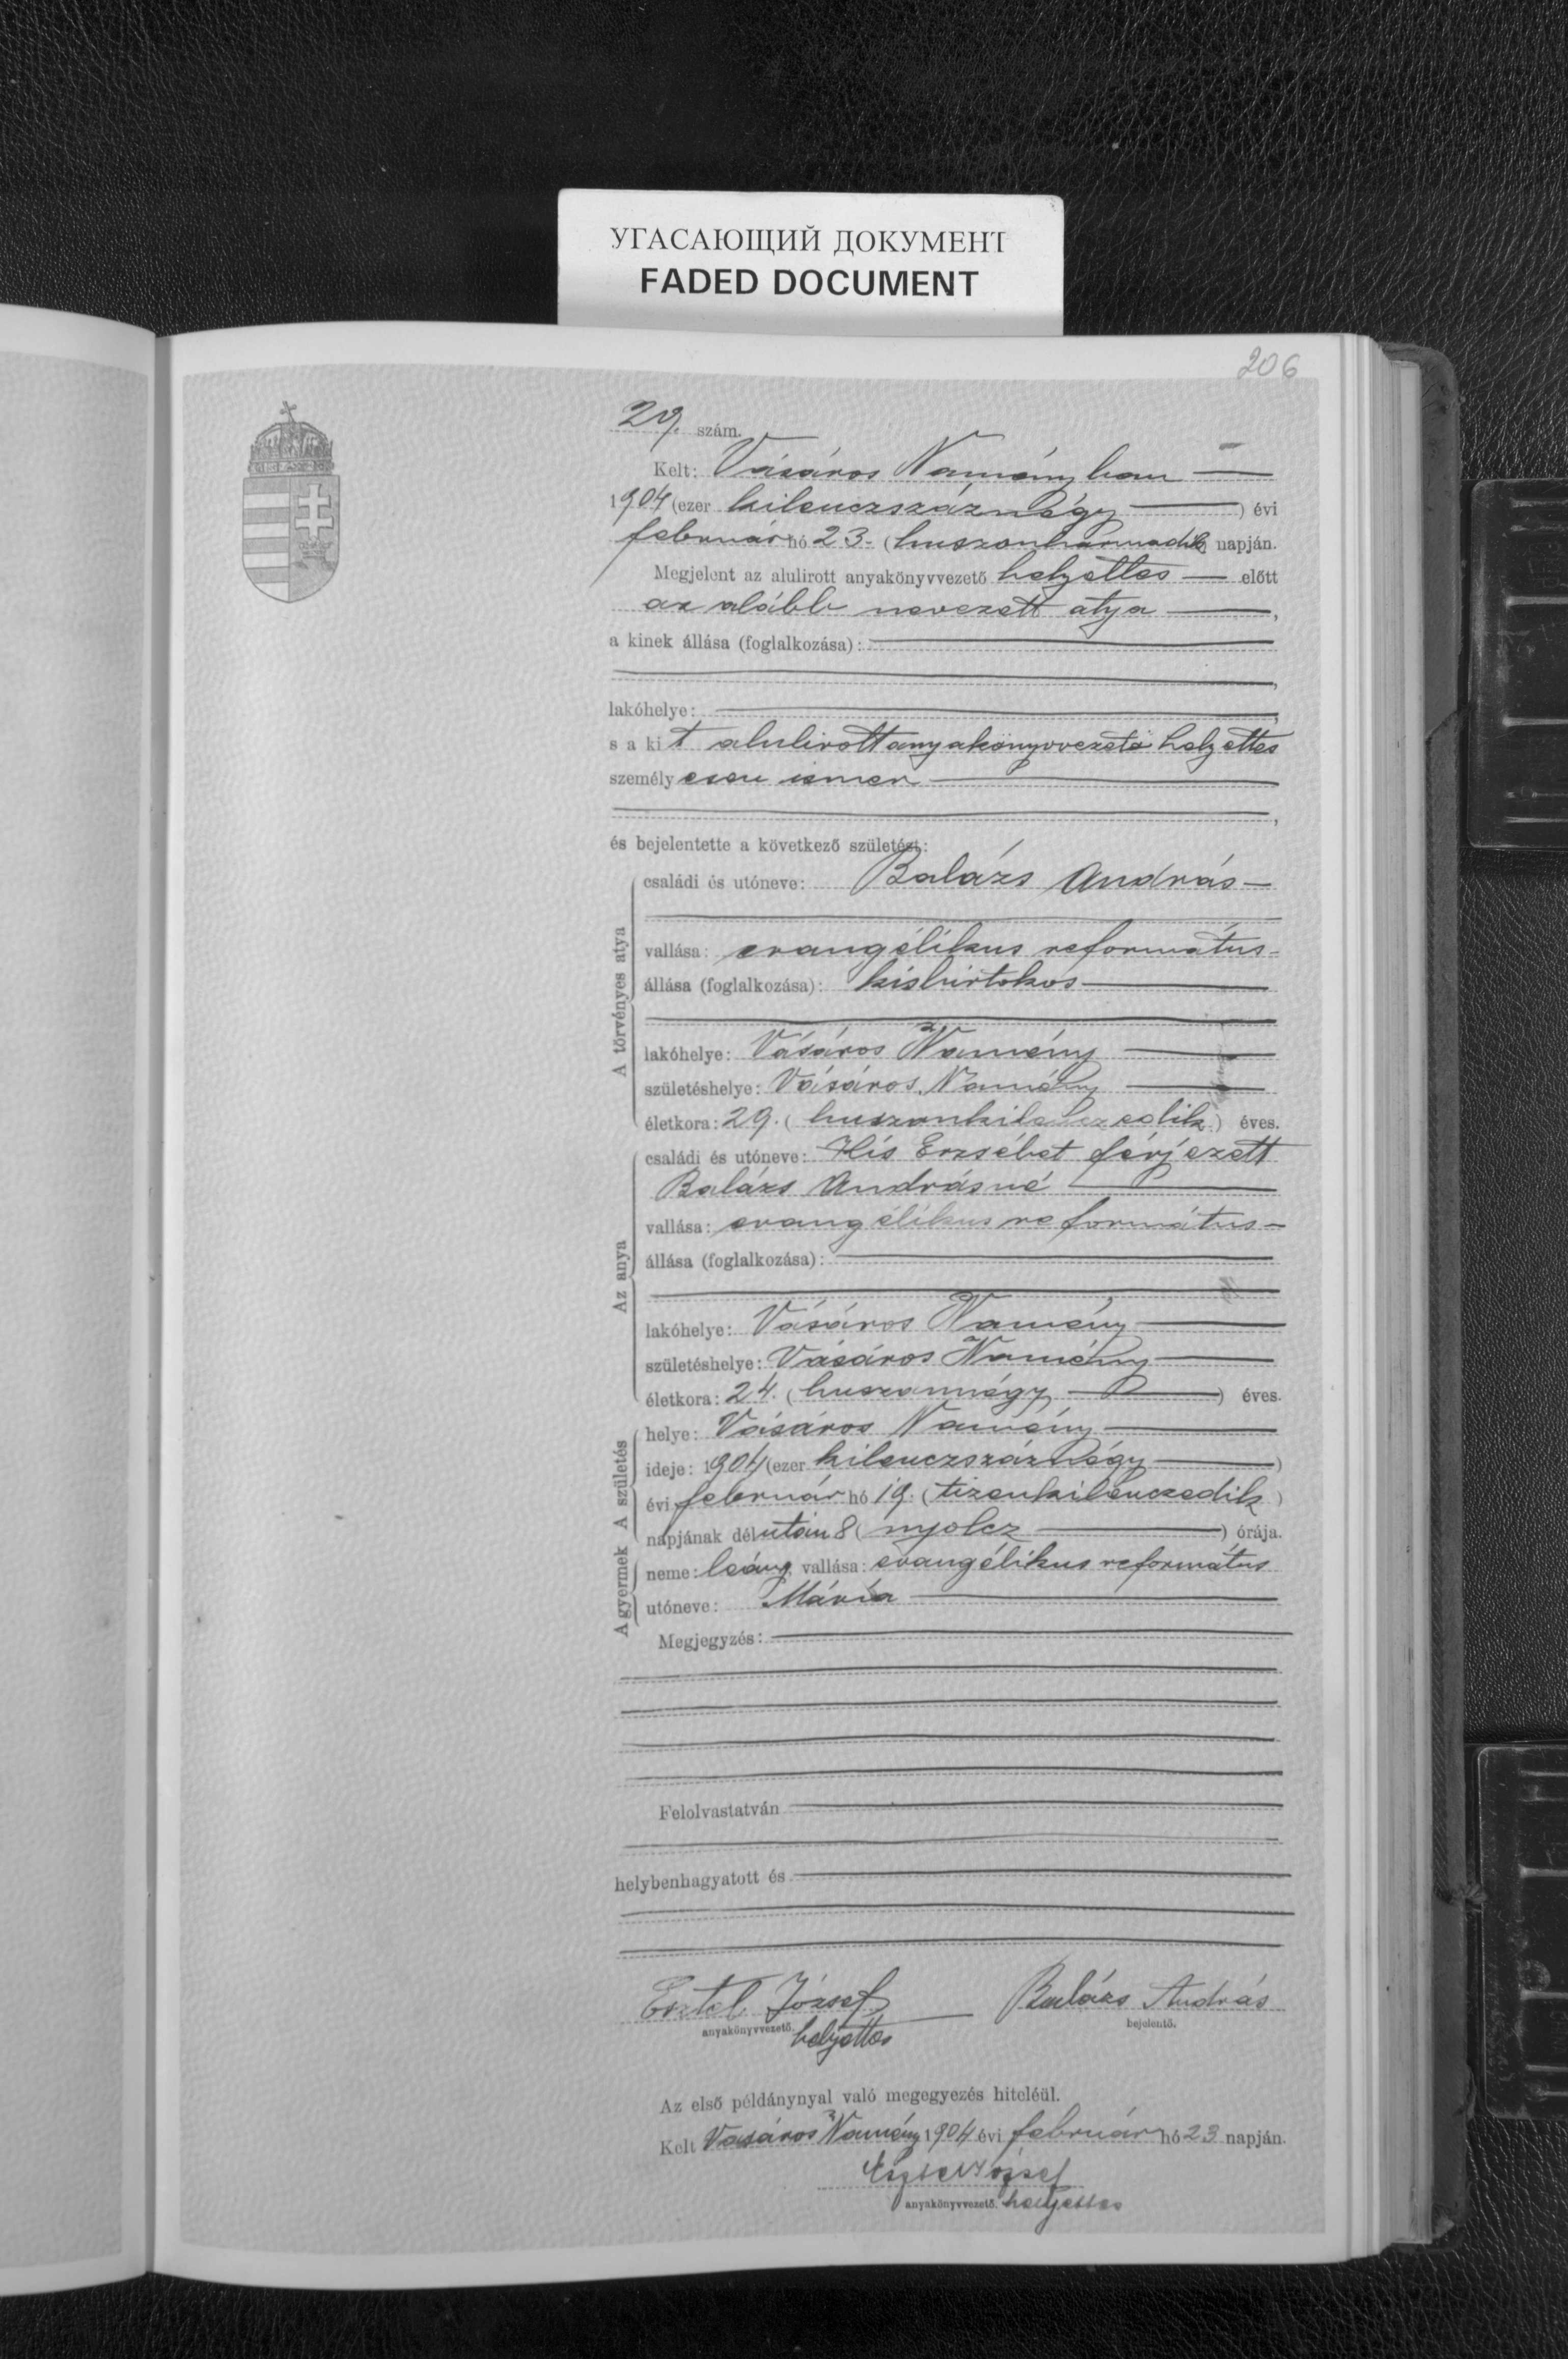 УГАСАЮЩИЙ ДОКУМЕНТ
FADED DOCUMENT
206
29. szám.
Kelt: Vásáros Naményban
1904 (ezer kilenczszáznégy) évi
február hó 23. (huszonharmadik) napján.
Megjelent az alulirott anyakönyvvezető helyettes előtt
az alább nevezett atya,
a kinek állása (foglalkozása):
lakóhelye:
s a kit alulirott anyakönyvvezető helyettes
személyesen ismer
és bejelentette a következő születést:
A törvényes atya
családi és utóneve: Balázs András
vallása: evangélikus református
állása (foglalkozása): kisbirtokos
lakóhelye: Vásáros Namény
születéshelye: Vásáros Namény
életkora: 29. (huszonkilenczedik) éves.
Az anya
családi és utóneve: Kis Erzsébet férjezett
Balázs Andrásné
vallása: evangélikus református
állása (foglalkozása):
lakóhelye: Vásáros Namény
születéshelye: Vásáros Namény
életkora: 24. (huszonnégy) éves.
A születés
helye: Vásáros Namény
ideje: 1904 (ezer kilenczszáznégy)
évi február hó 19. (tizenkilenczedik)
napjának délután 8 (nyolcz) órája.
A gyermek
neme: leány, vallása: evangélikus református
utóneve: Mária
Megjegyzés:
Felolvastatván
helybenhagyatott és
Esztel József Balázs András
anyakönyvvezető. helyettes bejelentő.
Az első példánynyal való megegyezés hiteléül.
Kelt Vásáros Namény 1904 évi február hó 23 napján.
Esztel József
anyakönyvvezető. helyettes